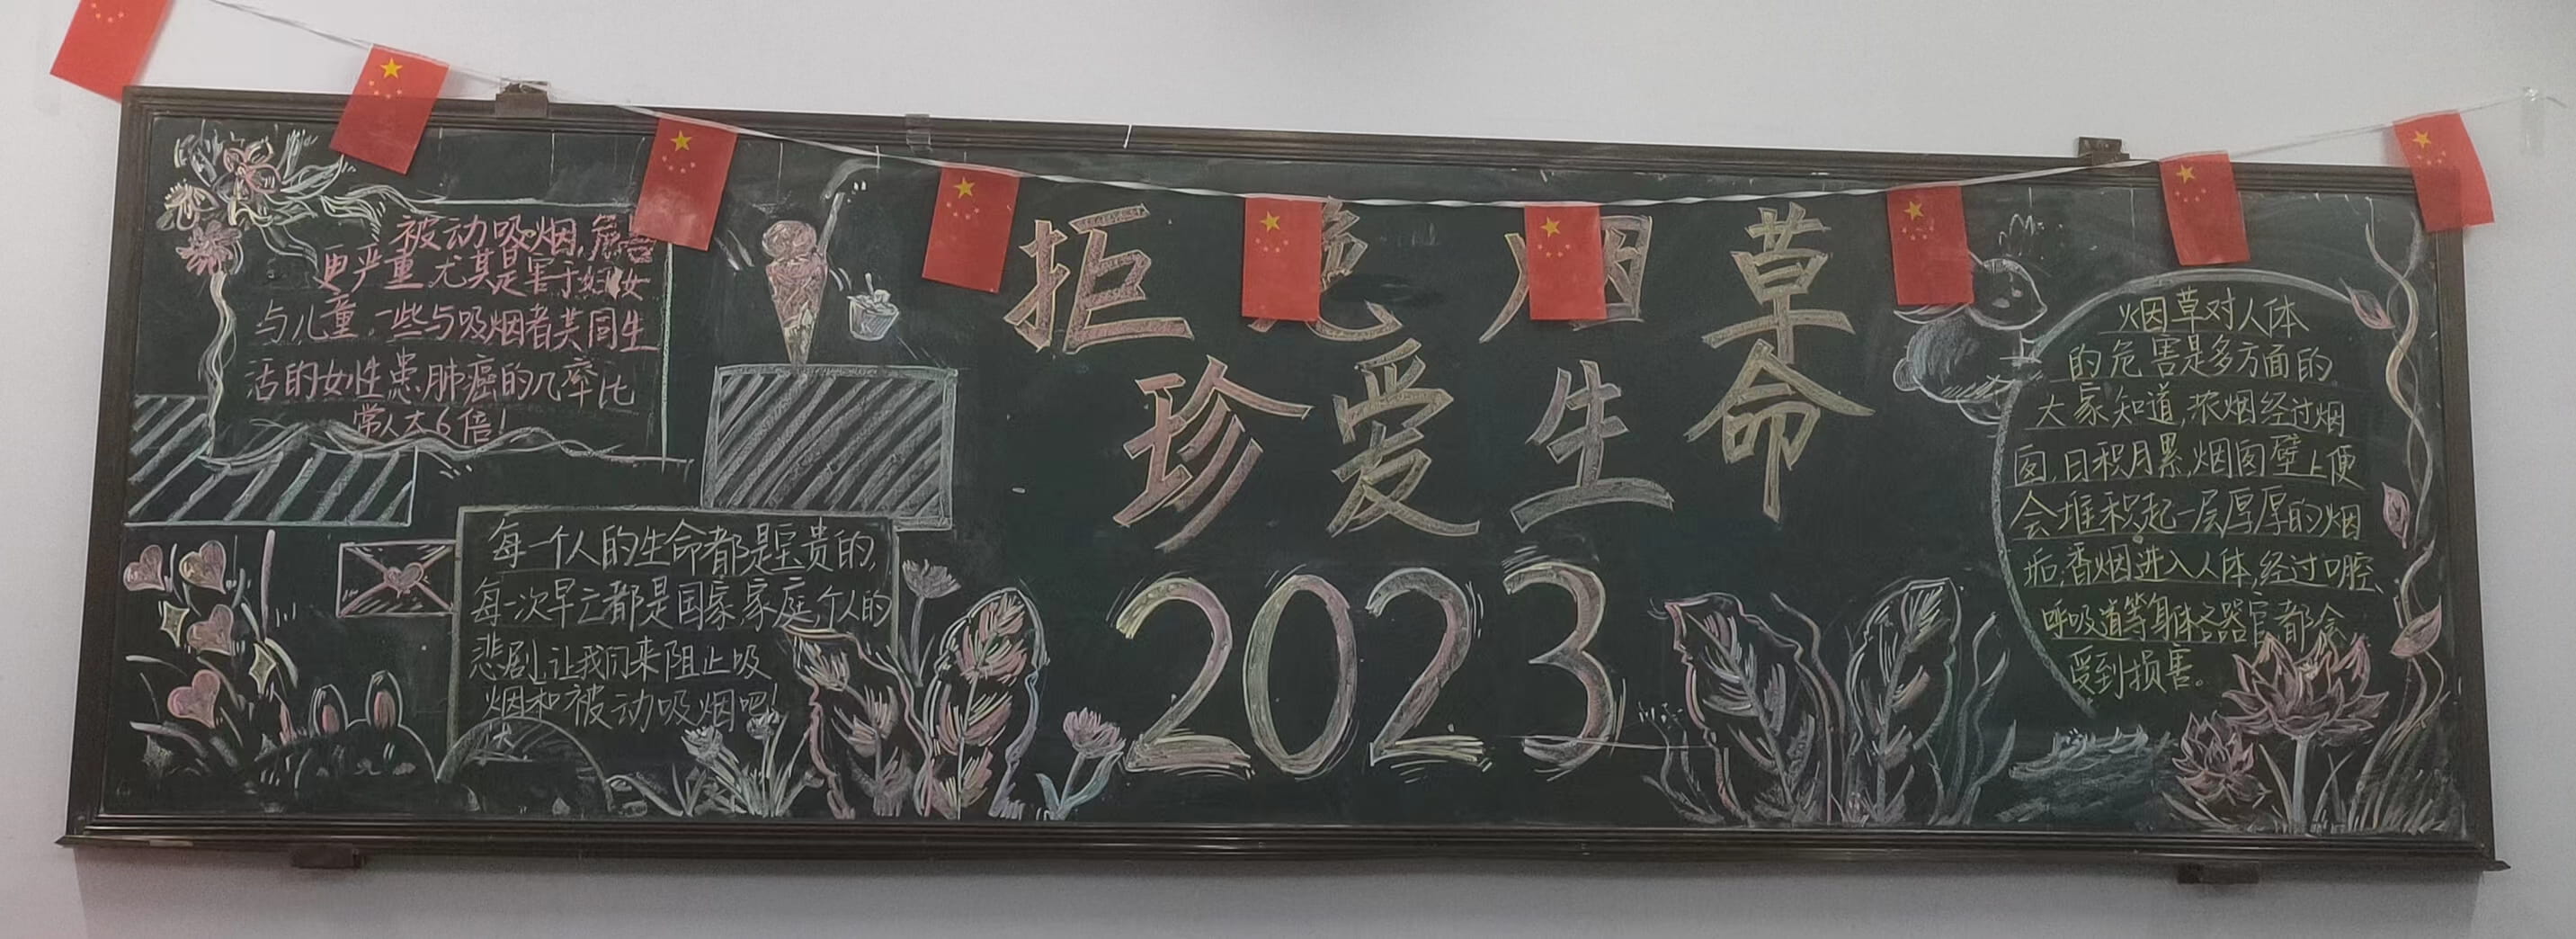 被动吸烟,危害
更严重尤其是害于妇女
与儿童,一些与吸烟者共同生
活的女性患肺癌的几率比
常人大6倍!
每一个人的生命都是宝贵的,
每一次早亡都是国家家庭个人的
悲剧,让我们来阻止吸
烟和被动吸烟吧!
拒绝烟草
珍爱生命
2023
烟草对人体
的危害是多方面的
大家知道,浓烟经过烟
囱,日积月累,烟囱壁上便
会堆积起一层厚厚的烟
垢;香烟进入人体,经过口腔、
呼吸道等身体各器官都会
受到损害。